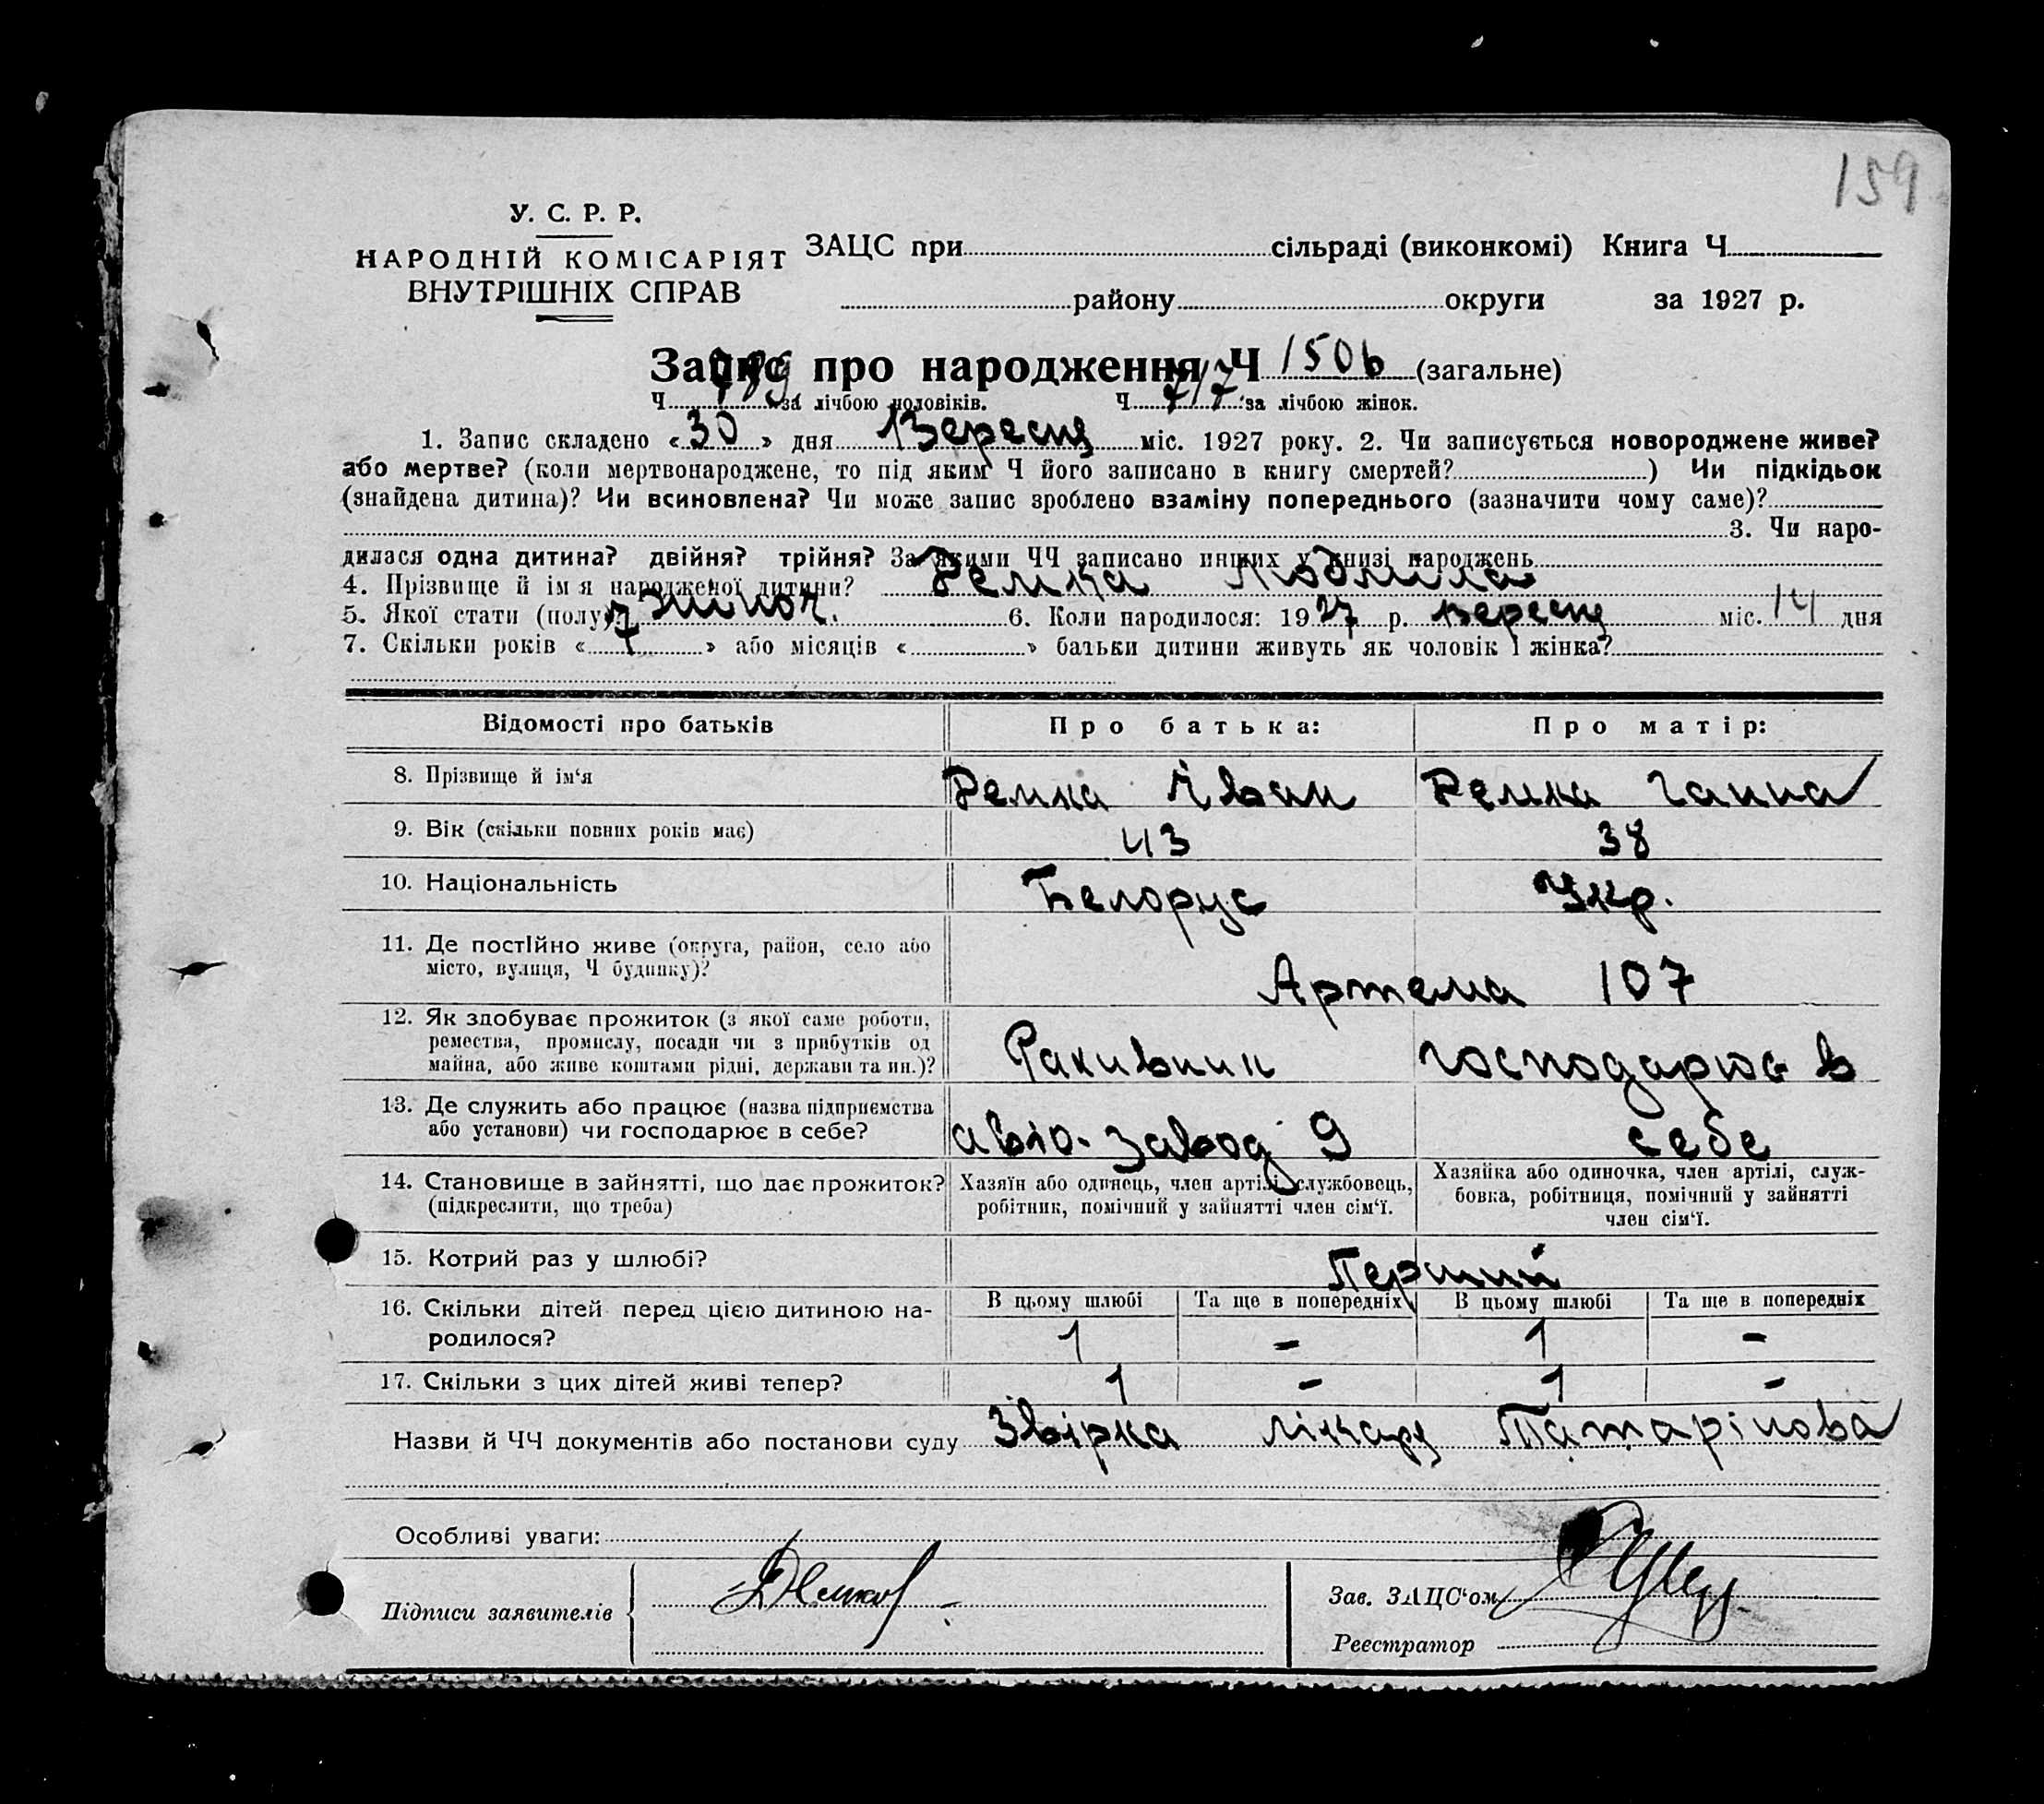 159
У. С. Р. Р.
НАРОДНІЙ КОМІСАРІЯТ
ВНУТРІШНІХ СПРАВ
ЗАЦС при сільраді (виконкомі) Книга Ч
району округи за 1927 р.
Запис про народження Ч 1506 (загальне)
Ч 789 за лічбою чоловіків. Ч 717 за лічбою жінок.
1. Запис складено «30» дня Вересня міс. 1927 року. 2. Чи записується новороджене живе?
або мертве? (коли мертвонароджене, то під яким Ч його записано в книгу смертей? ) Чи підкідьок
(знайдена дитина)? Чи всиновлена? Чи може запис зроблено взаміну попереднього (зазначити чому саме)?
3. Чи наро-
дилася одна дитина? двійня? трійня? За якими ЧЧ записано инших у книзі народжень
4. Прізвище й ім'я народженої дитини? Ремка Людмила
5. Якої стати (полу)? жіноч. 6. Коли народилося: 1927 р. Вересня міс. 14 дня
7. Скільки років «7» або місяців « » батьки дитини живуть як чоловік і жінка?
Відомості про батьків Про батька: Про матір:
8. Прізвище й ім'я Ремка Іван Ремка Ганна
9. Вік (скільки повних років має) 43 38
10. Національність Белорус Укр.
11. Де постійно живе (округа, район, село або
місто, вулиця, Ч будинку)? Артема 107
12. Як здобуває прожиток (з якої саме роботи,
ремества, промислу, посади чи з прибутків од
майна, або живе коштами рідні, держави та ин.)? Рахивник господарює в
13. Де служить або працює (назва підприємства
або установи) чи господарює в себе? авіо-завод 9 себе
14. Становище в зайнятті, що дає прожиток?
(підкреслити, що треба)
Хазяїн або одинець, член артілі, службовець,
робітник, помічний у зайнятті член сім'ї.
Хазяйка або одиночка, член артілі, служ-
бовка, робітниця, помічний у зайнятті
член сім'ї.
15. Котрий раз у шлюбі? Перший
16. Скільки дітей перед цією дитиною на-
родилося?
В цьому шлюбі Та ще в попередніх В цьому шлюбі Та ще в попередніх
1 - 1 -
17. Скільки з цих дітей живі тепер? 1 - 1 -
Назви й ЧЧ документів або постанови суду Звірка лікаря Татарінова
Особливі уваги:
Підписи заявителів
Зав. ЗАЦС'ом
Реєстратор